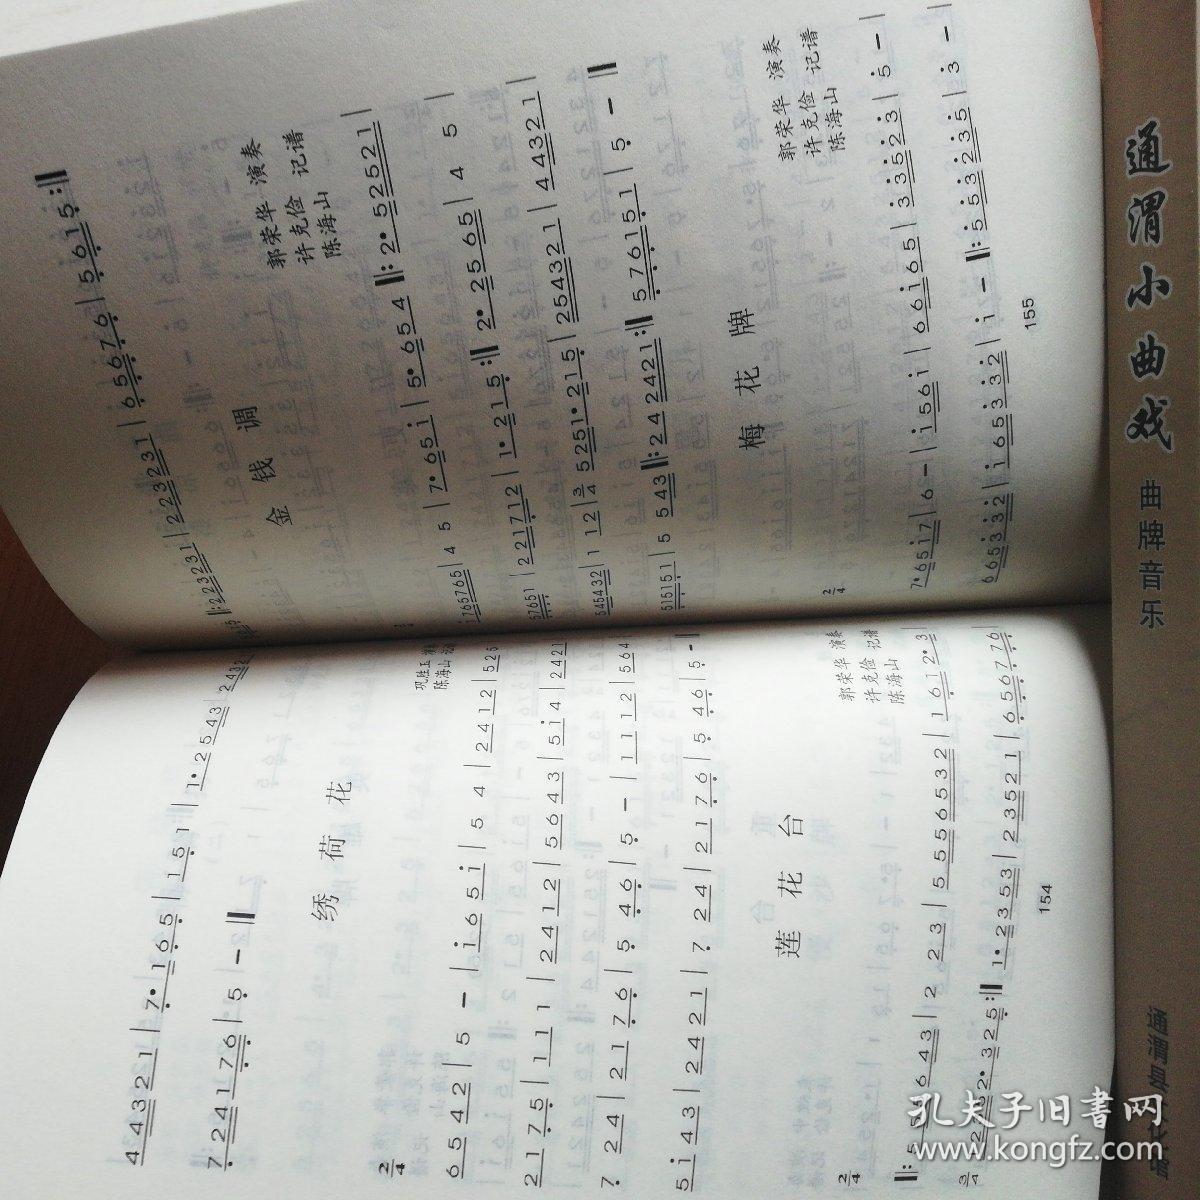 4 4 3 2 1 | 7• 1 6 5 | 1 5 1 | 1• 2 5 4 3
7 2 4 1 7 6 | 5 – ‖
绣荷花
陈海山
2/4
6 5 4 2 | 5 – | i 6 5 i | 5 4 | 2 4 1 2 | 5 2 5
2 1 7 5 | 1 1 1 | 2 4 1 2 | 5 6 4 3 | 5 i 4 | 2 4 2 1
7 2 4 | 2 1 7 6 | 5 4 6 | 5 – | 1 1 1 2 | 5 6 4
5 i 4 3 | 2 4 2 1 | 7 2 4 | 2 1 7 6 | 5 4 6 | 5 – ‖
莲花台
郭荣华 演奏
许克俭 记谱
陈海山
2/4
6 4 3 | 2 2 3 | 5 5 5 6 5 3 2 | 1 6 1 2• 3 |
3/4
2• 3 2 5 :‖ 1• 2 3 5 3 | 2 3 5 2 1 | 6 5 6 7 7 6 |
154
‖: 2 2 3 2 3 1 | 2 2 3 2 3 1 | 6 5 6 7 6 | 5 6 1 5 :‖
金钱调
郭荣华 演奏
许克俭 记谱
陈海山
1 7 6 5 7 6 5 | 4 5 | 7• 6 5 i | 5• 6 5 4 ‖: 2• 5 2 5 2 1 |
5 7 6 5 1 | 2 2 1 7 1 2 | 1• 2 1 5 :‖ 2• 2 5 6 5 | 4 5 |
5 4 5 4 3 2 | 1 1 2 | 3/4 5 2 5 1• 2 1 5 | 2 5 4 3 2 1 | 4 4 3 2 1 |
5 1 5 1 5 1 | 5 5 4 3 ‖: 2 4 2 4 2 1 :‖ 5 7 6 1 5 1 | 5 – ‖
梅花牌
郭荣华 演奏
许克俭 记谱
陈海山
2/4
7• 6 5 i 7 | 6 – | i 5 6 i | 6 6 i 6 5 | 3 3 5 2 3 | 5 – |
6 6 5 3 3 2 | i 6 5 3 3 2 | i – ‖: 5 5 3 2 3 5 | 3 – |
155
通渭小曲戏
曲牌音乐
通渭县文化馆
孔夫子旧书网
www.kongfz.com